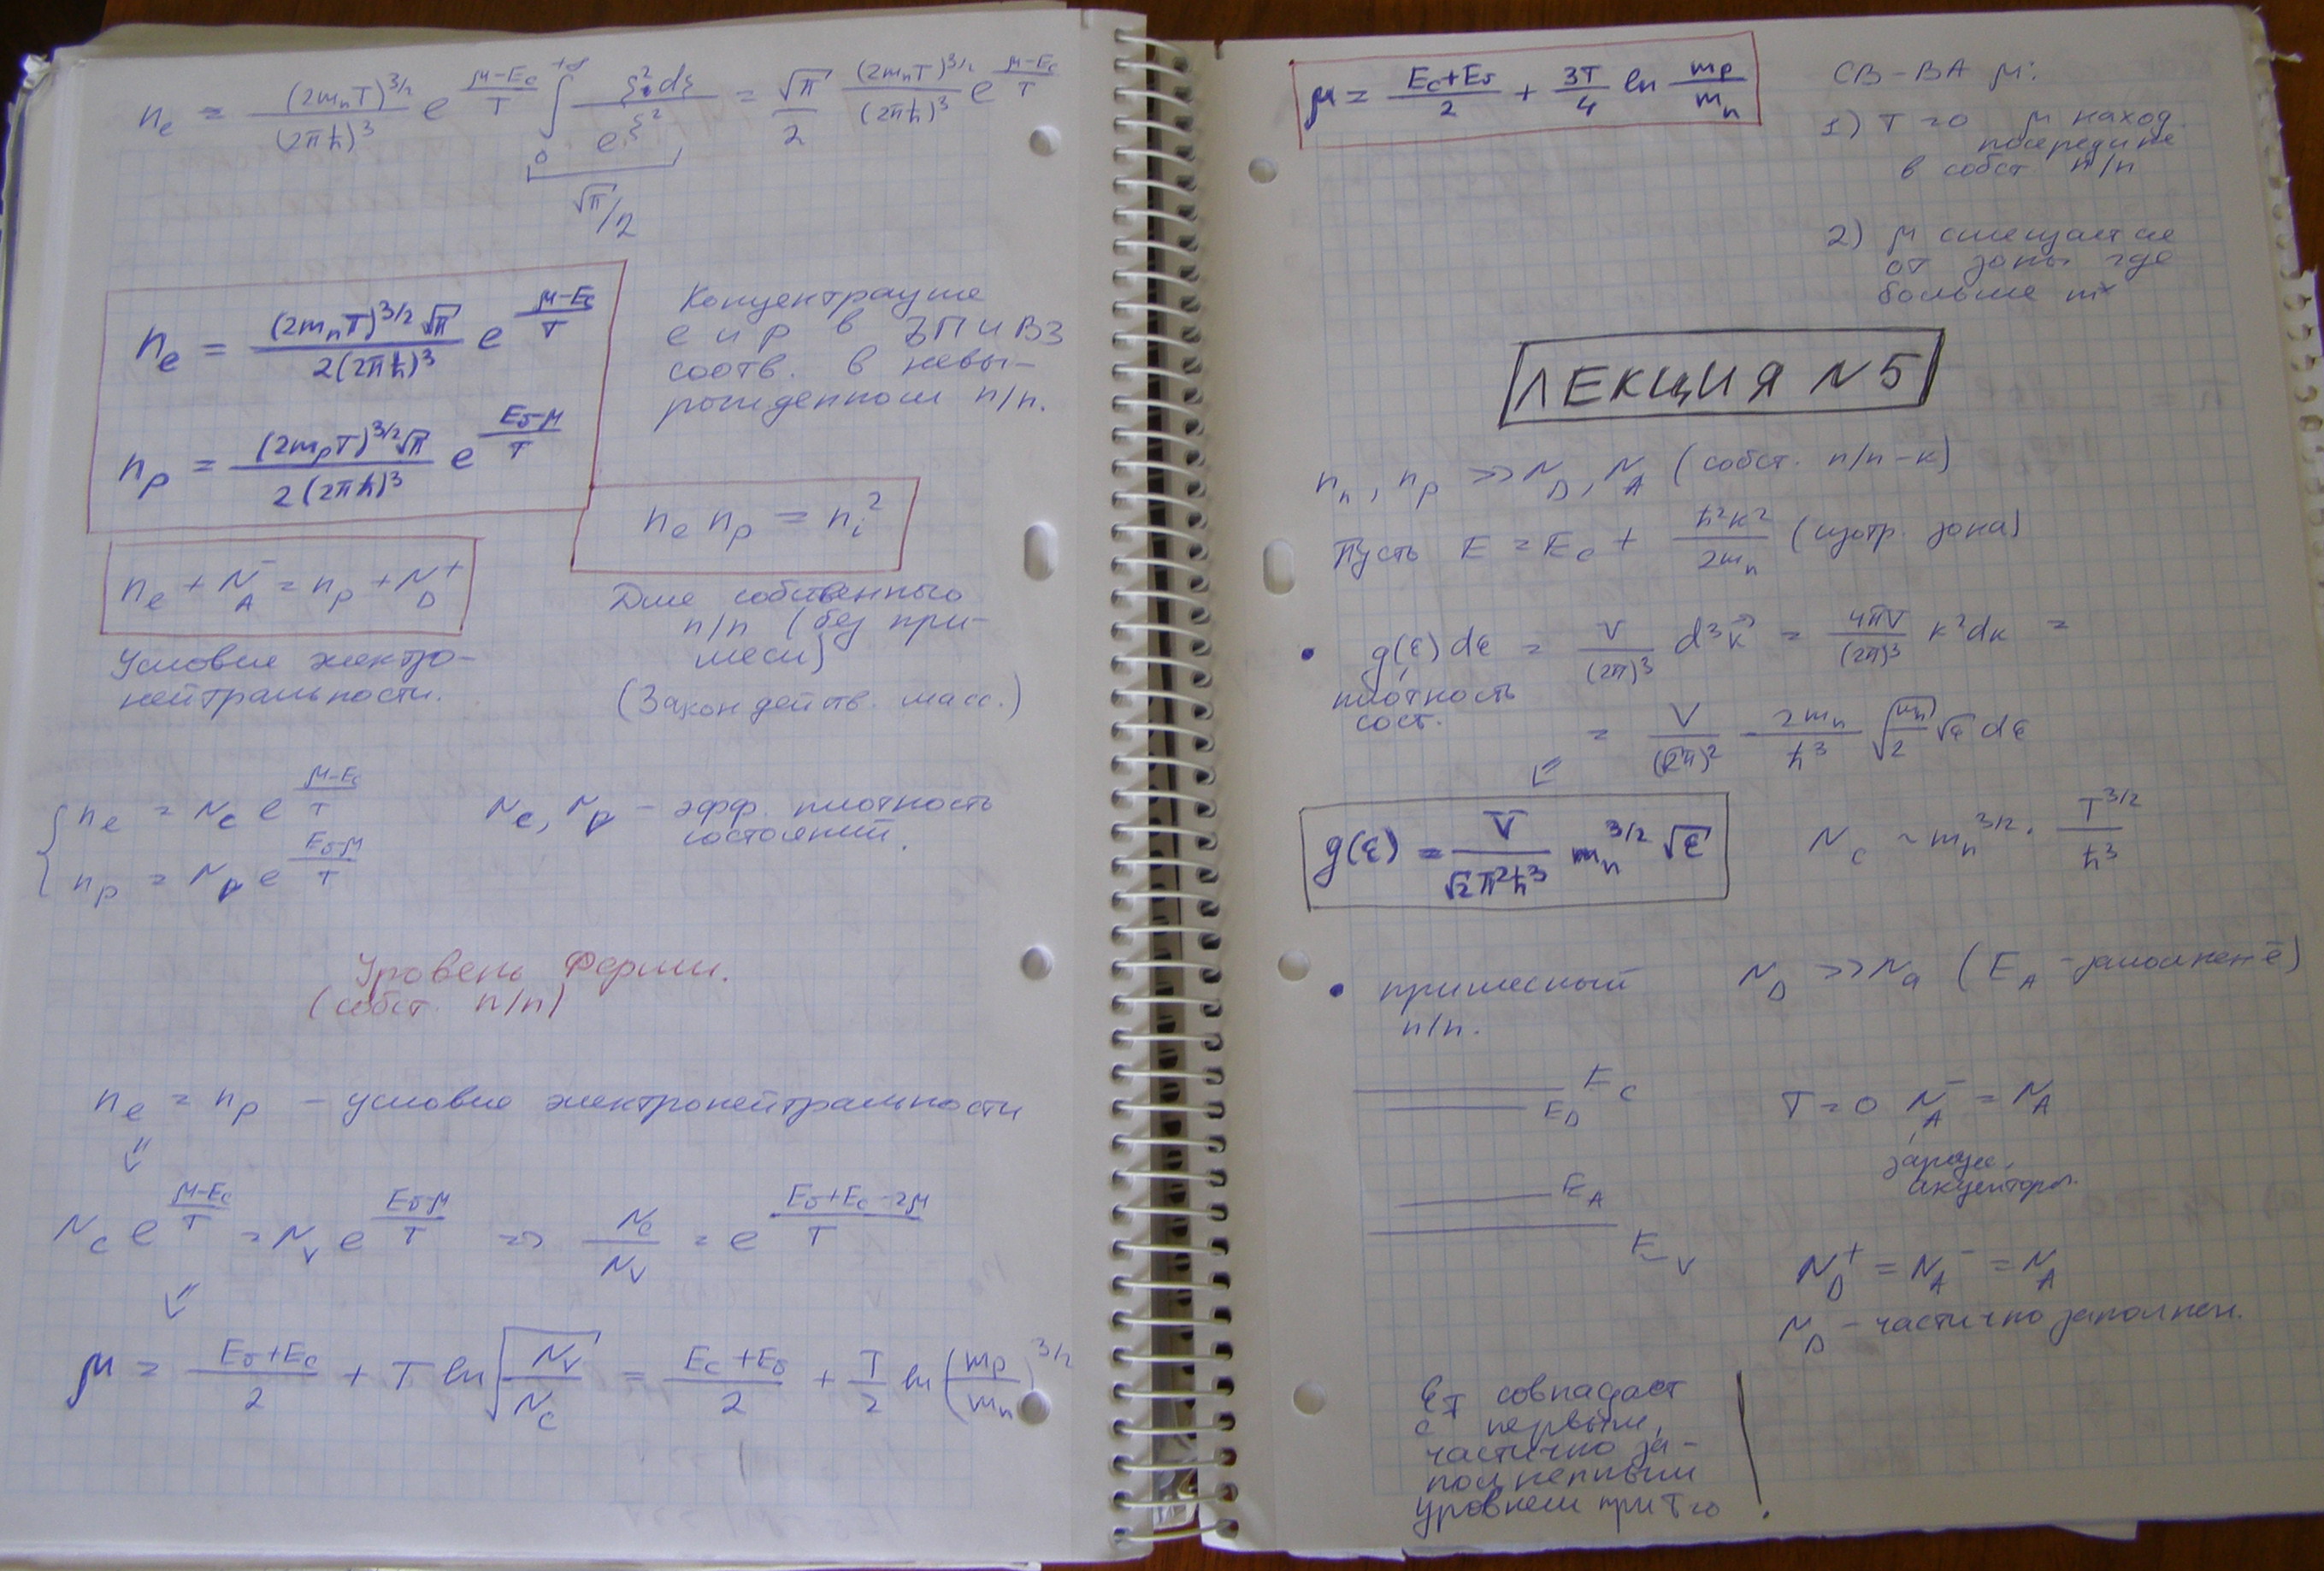 n_e = (2m_nT)^{3/2}/(2πħ)^3 e^{(μ-E_c)/T} ∫_0^{+∞} ξ^2 dξ / e^{ξ^2} = √π/2 (2m_nT)^{3/2}/(2πħ)^3 e^{(μ-E_c)/T}
√π/2
n_e = (2m_nT)^{3/2}√π / 2(2πħ)^3 e^{(μ-E_c)/T}
n_p = (2m_pT)^{3/2}√π / 2(2πħ)^3 e^{(E_v-μ)/T}
Концентрация
e и p в ЗП и ВЗ
соотв. в невы-
рожденном п/п.
n_e n_p = n_i^2
n_e + N_A^- = n_p + N_D^+
Для собственного
п/п (без при-
меси)
(Закон действ. масс.)
Условие электро-
нейтральности.
n_e = N_c e^{(μ-E_c)/T}
n_p = N_v e^{(E_v-μ)/T}
N_c, N_v - эфф. плотность
состояний.
Уровень Ферми.
(собст. п/п)
n_e = n_p - условие электронейтральности
⇓
N_c e^{(μ-E_c)/T} = N_v e^{(E_v-μ)/T} ⇒ N_c/N_v = e^{(E_v+E_c-2μ)/T}
⇓
μ = (E_v+E_c)/2 + T ln √(N_v/N_c) = (E_c+E_v)/2 + T/2 ln (m_p/m_n)^{3/2}
μ = (E_c+E_v)/2 + 3T/4 ln m_p/m_n
СВ-ВА μ:
1) T=0 μ наход.
посередине
в собст. п/п
2) μ смещается
от зоны где
больше m*
ЛЕКЦИЯ N5
n_n, n_p >> N_D, N_A (собст. п/п-к)
Пусть E = E_c + ħ^2k^2/2m_n (изотр. зона)
• g(ε)dε = V/(2π)^3 d^3k⃗ = 4πV/(2π)^3 k^2dk =
плотность
сост.
= V/(2π)^2 2m_n/ħ^3 √(m_n/2) √ε dε
⇓
g(ε) = V/(√2π^2ħ^3) m_n^{3/2} √ε
N_c ~ m_n^{3/2} · T^{3/2}/ħ^3
• примесный
п/п.
N_D >> N_a (E_A - заполнен ē)
E_c
E_D
E_A
E_v
T=0 N_A^- = N_A
заряж.
акцепторы.
N_D^+ = N_A^- = N_A
N_D - частично заполнен.
совпадает
с первым,
частично за-
полненным
уровнем при T=0